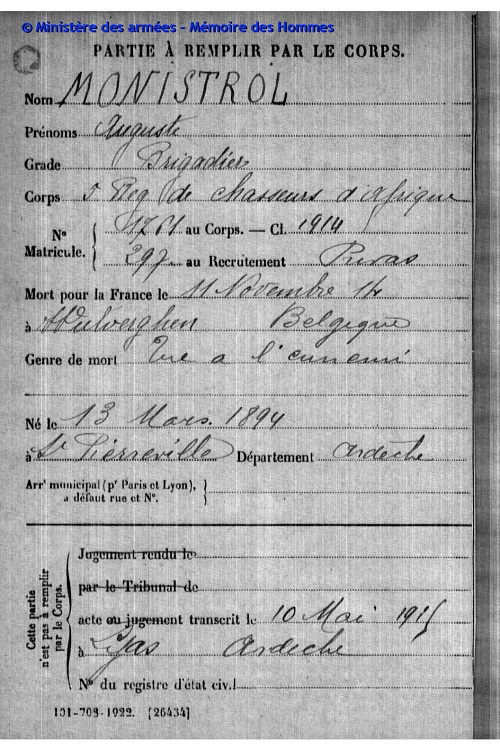 © Ministère des armées - Mémoire des Hommes
PARTIE À REMPLIR PAR LE CORPS.
Nom MONISTROL
Prénoms Auguste
Grade Brigadier
Corps 5 Reg de chasseurs d'afrique
N° Matricule. { au Corps. — Cl. 1914
297 au Recrutement Privas
Mort pour la France le 11 Novembre 14
à Wulverghen Belgique
Genre de mort Tué a l'ennemi
Né le 13 Mars. 1894
à St Pierreville Département Ardèche
Arrt municipal (pr Paris et Lyon), }
à défaut rue et N°.
Cette partie n'est pas à remplir par le Corps.
Jugement rendu le
par le Tribunal de
acte ou jugement transcrit le 10 Mai 1915
à Lyas Ardèche
N° du registre d'état civil
101-708-1922. [26434]